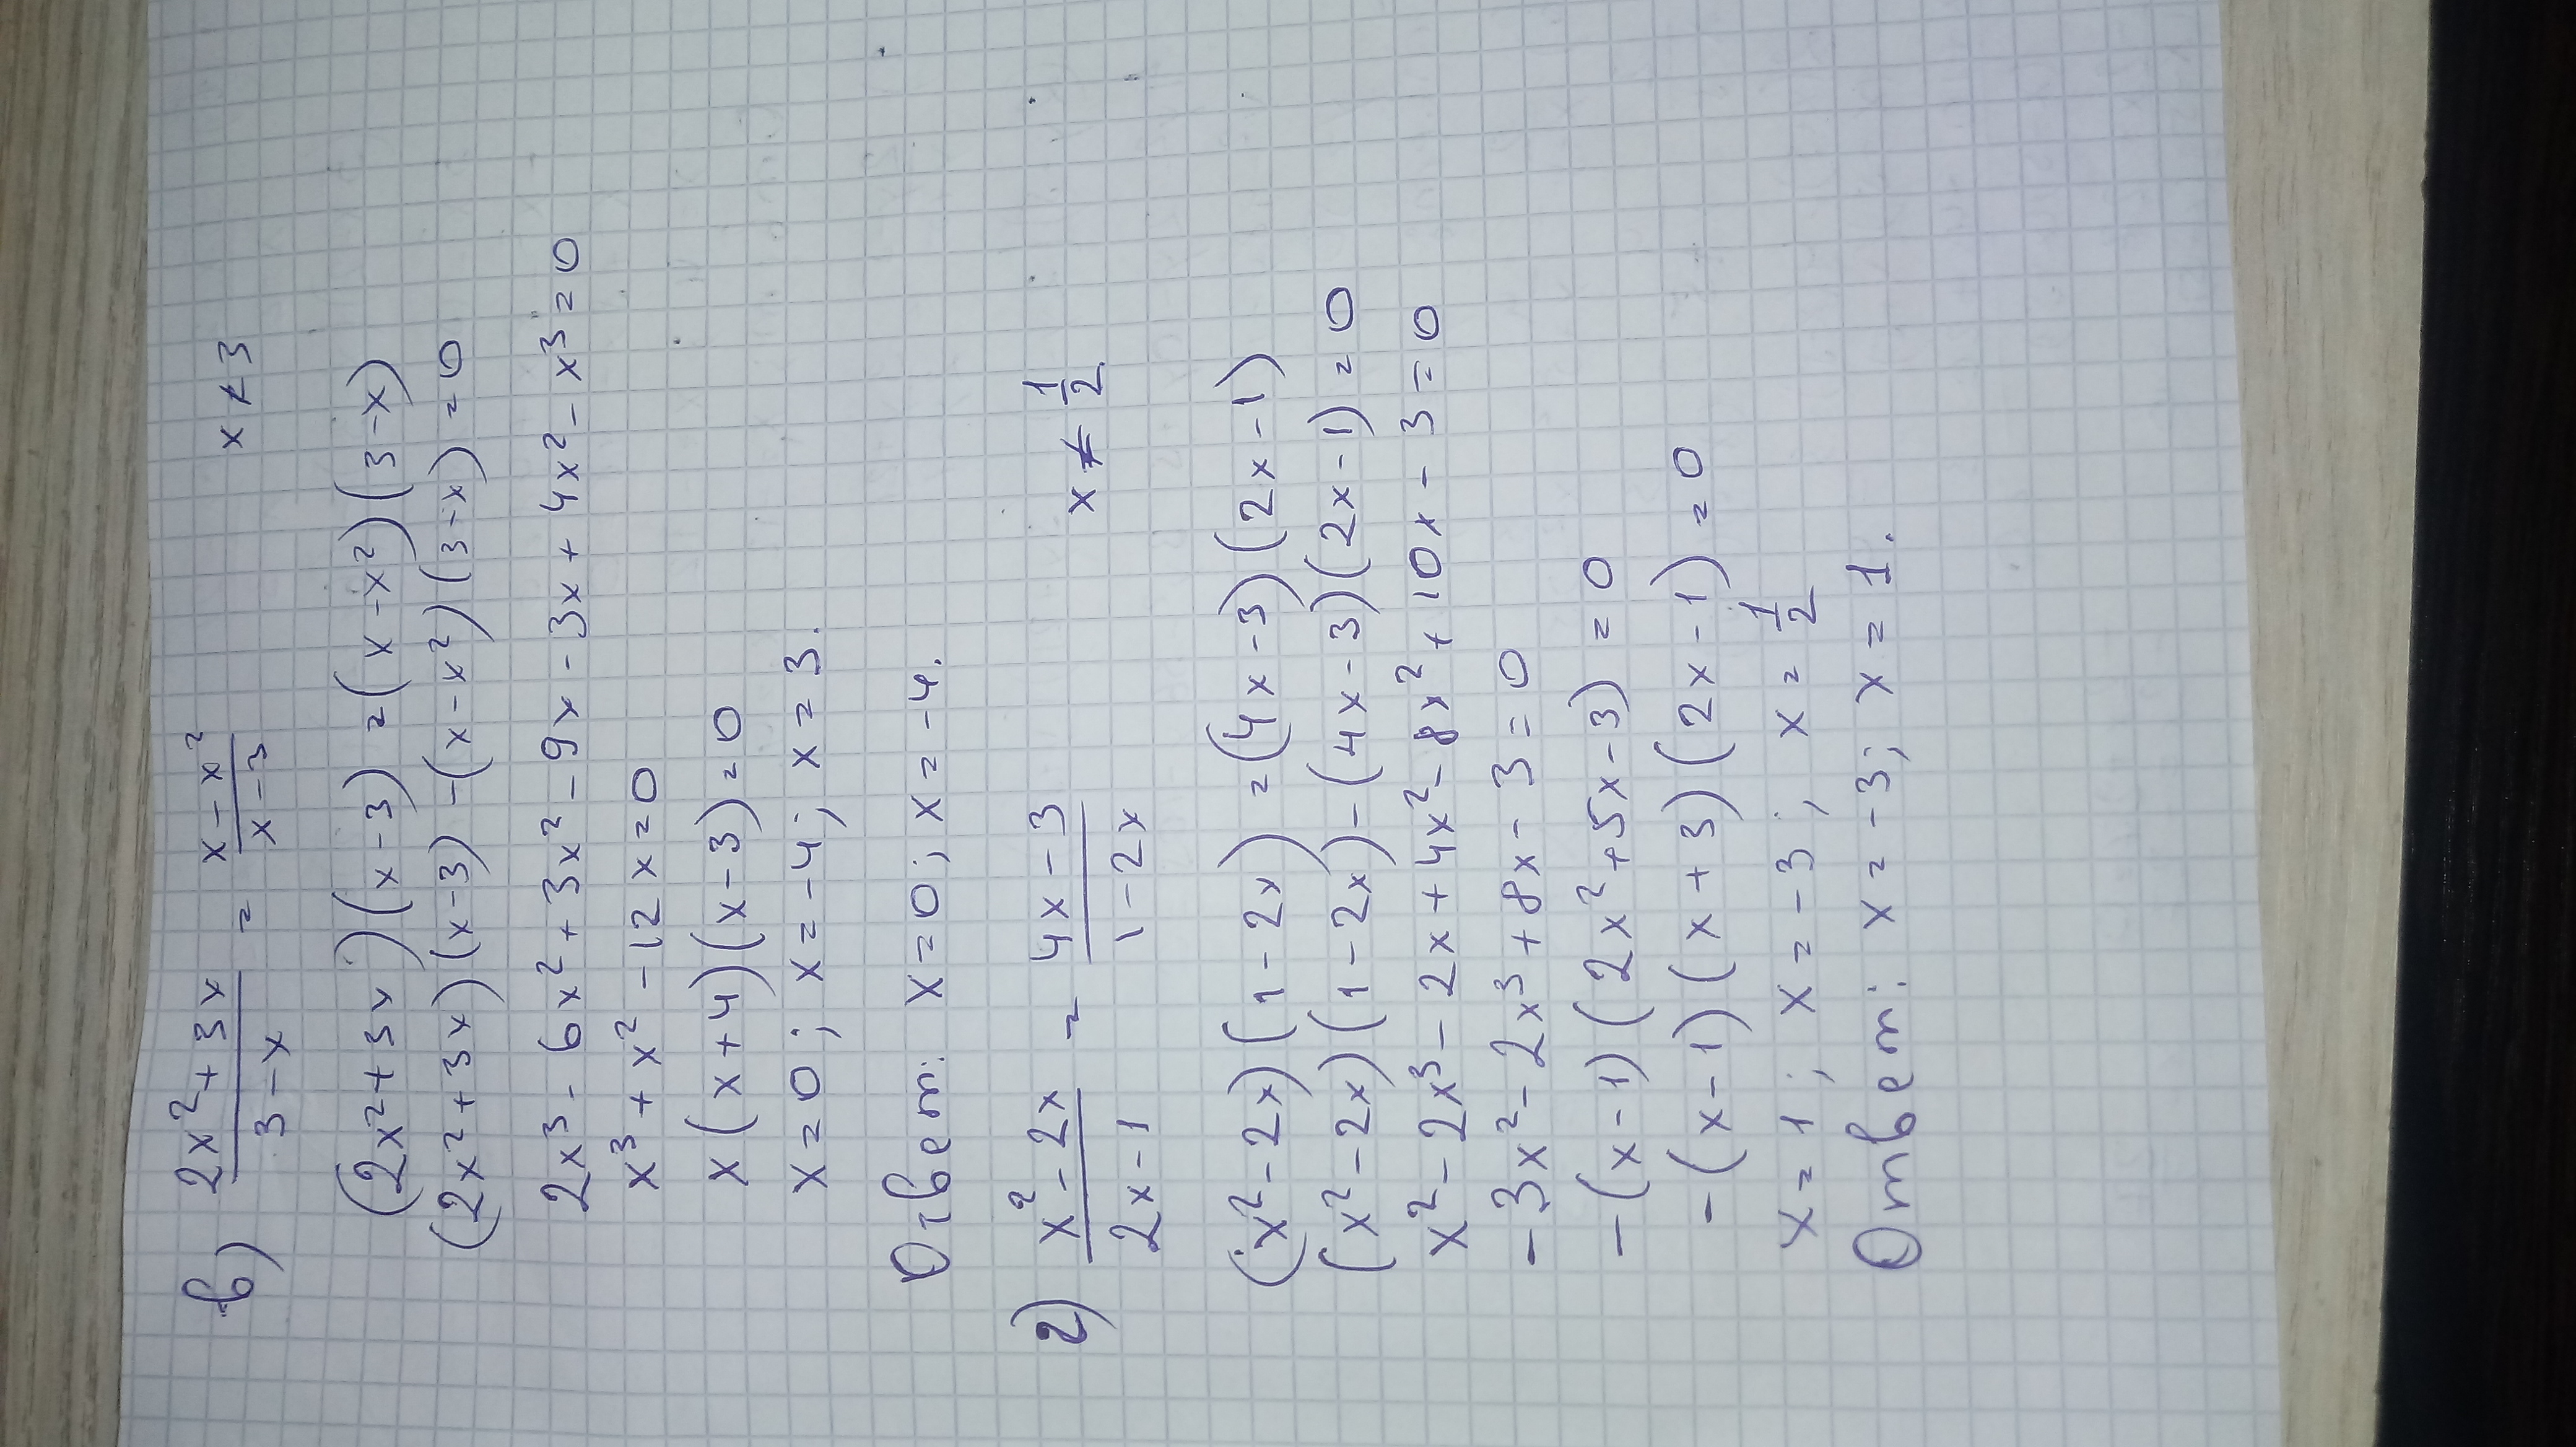 в) (2x²+3x)/(3-x) = (x-x²)/(x-3)   x≠3
(2x²+3x)(x-3) =(x-x²)(3-x)
(2x²+3x)(x-3)-(x-x²)(3-x)=0
2x³-6x²+3x²-9x-3x+4x²-x³=0
x³+x²-12x=0
x(x+4)(x-3)=0
x=0; x=-4; x=3.
Ответ: x=0; x=-4.
г) (x²-2x)/(2x-1) = (4x-3)/(1-2x)   x≠1/2
(x²-2x)(1-2x)=(4x-3)(2x-1)
(x²-2x)(1-2x)-(4x-3)(2x-1)=0
x²-2x³-2x+4x²-8x²+10x-3=0
-3x²-2x³+8x-3=0
-(x-1)(2x²+5x-3)=0
-(x-1)(x+3)(2x-1)=0
x=1; x=-3; x=1/2
Ответ: x=-3; x=1.